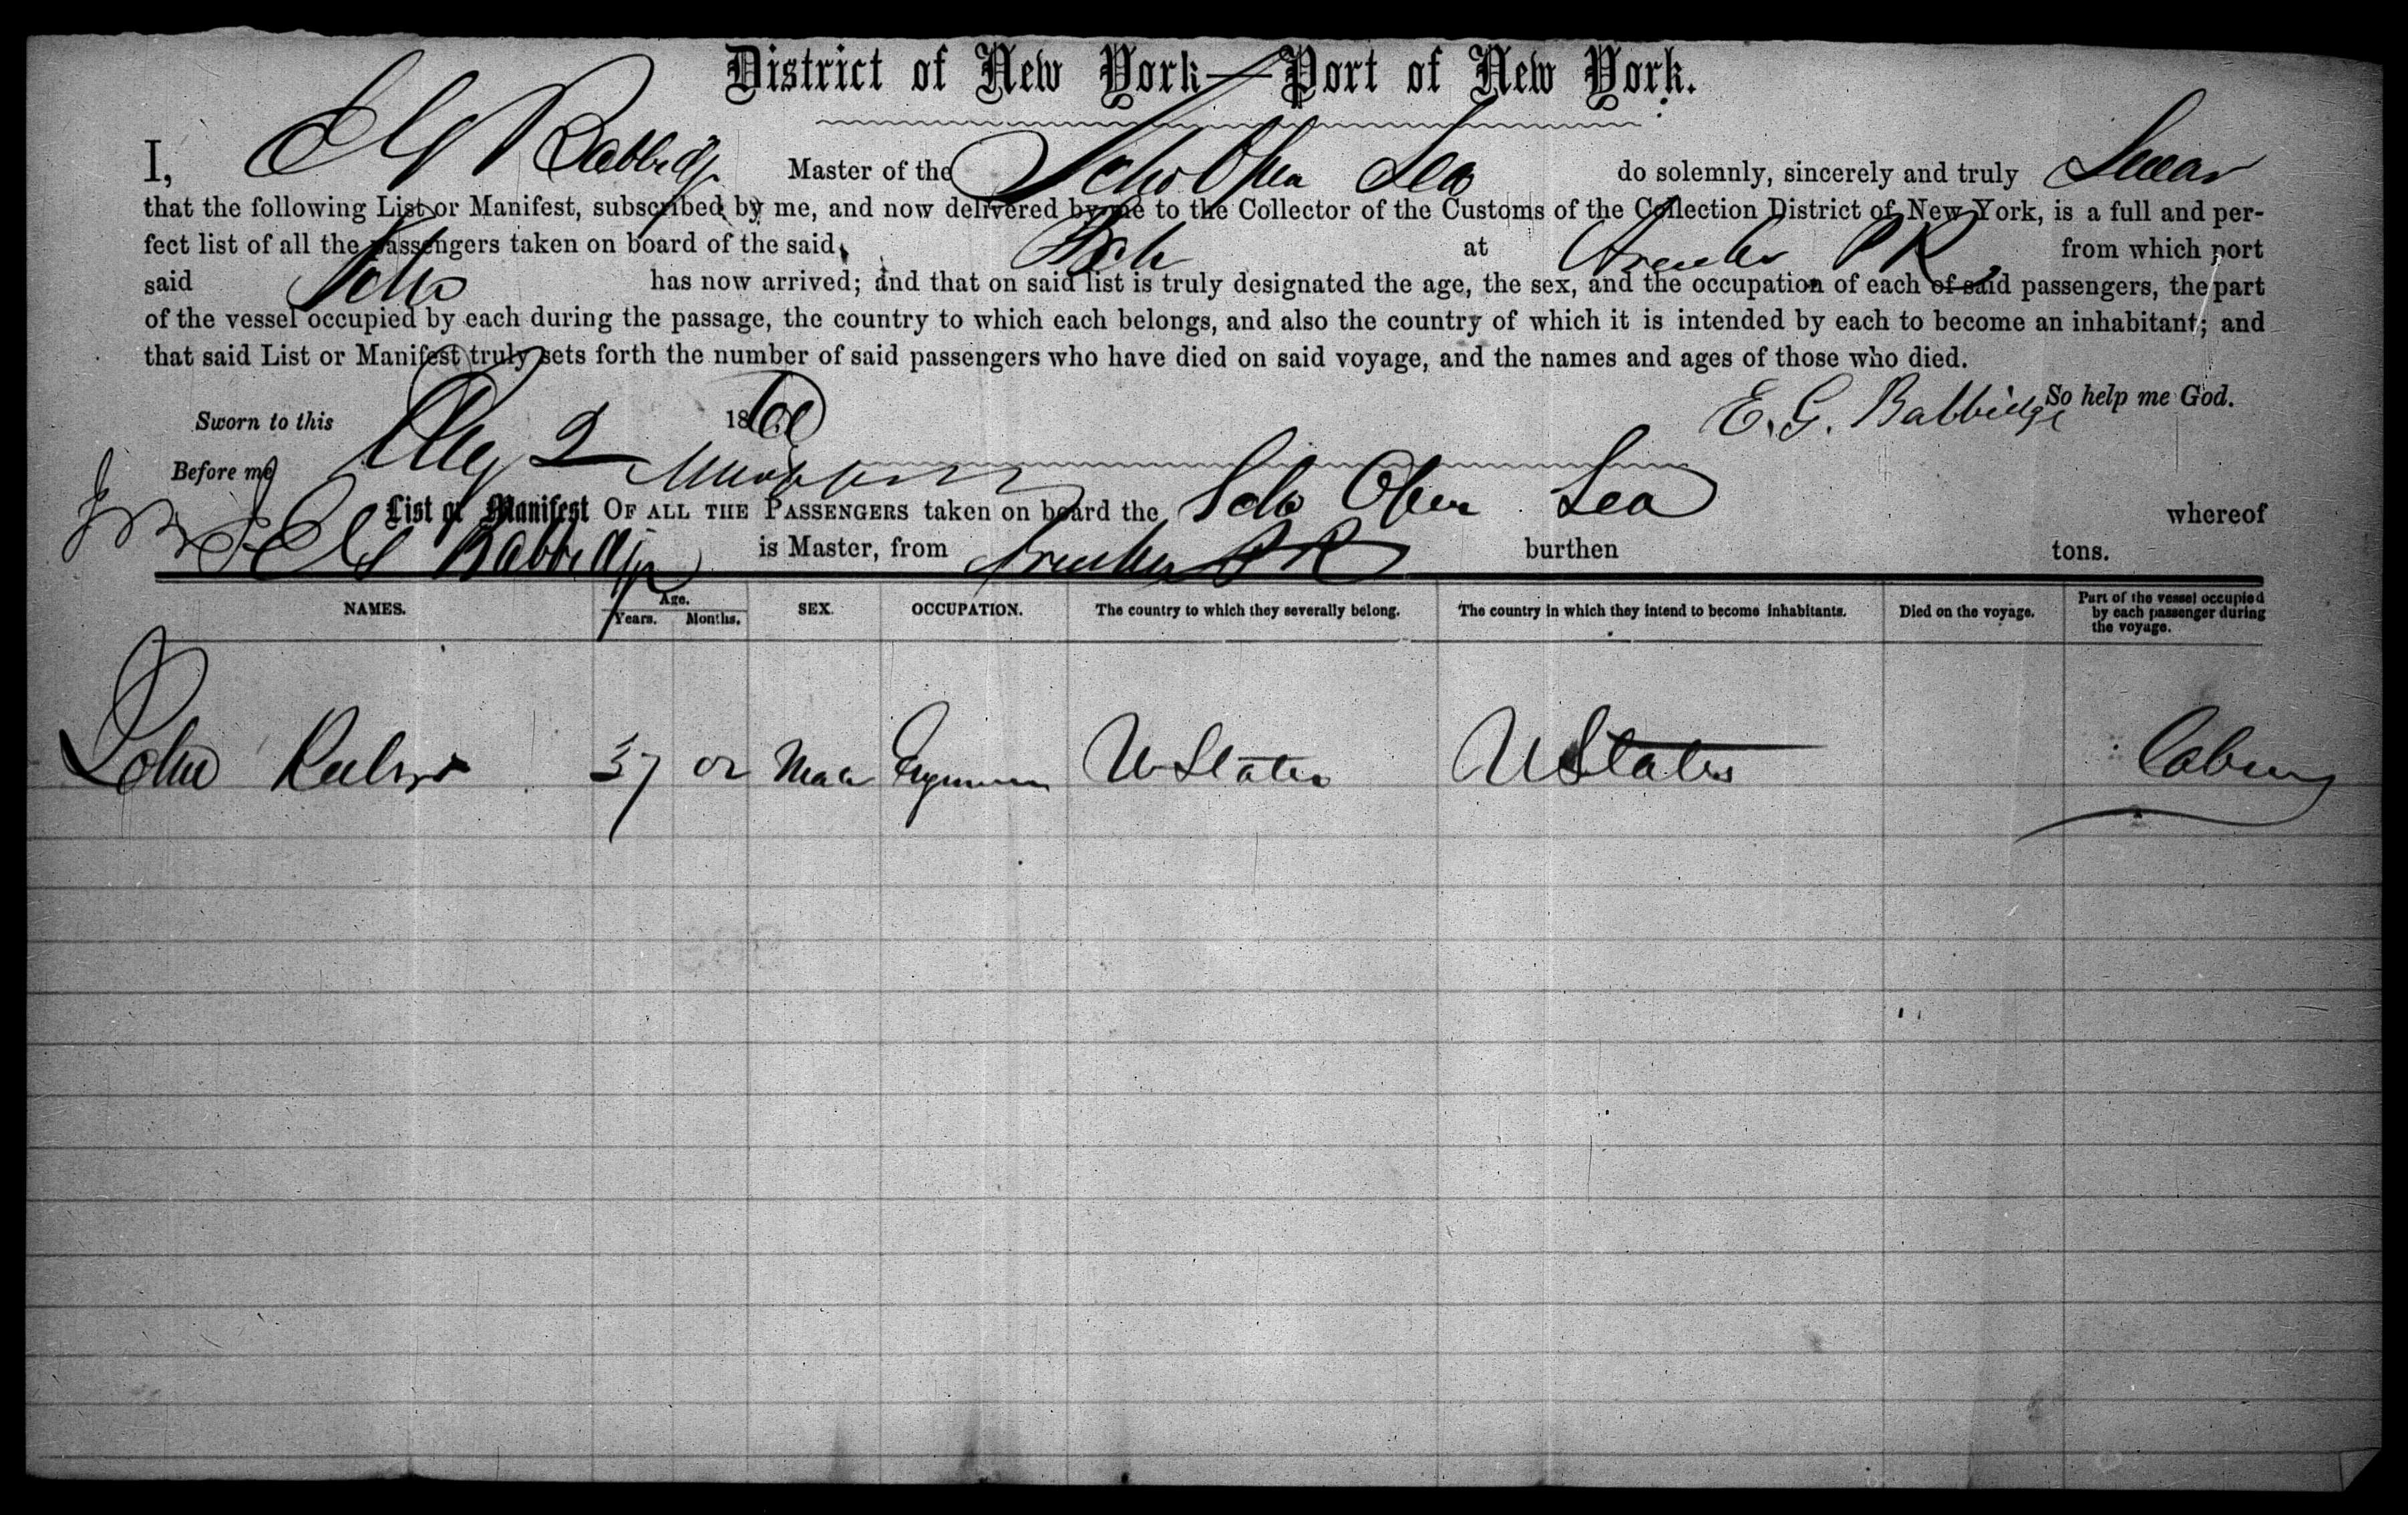 District of New York—Port of New York.
I, E G Babbidge Master of the Schr Open Sea do solemnly, sincerely and truly Swear
that the following List or Manifest, subscribed by me, and now delivered by me to the Collector of the Customs of the Collection District of New York, is a full and per-
fect list of all the passengers taken on board of the said Sch at P R from which port
said Schr has now arrived; and that on said list is truly designated the age, the sex, and the occupation of each of said passengers, the part
of the vessel occupied by each during the passage, the country to which each belongs, and also the country of which it is intended by each to become an inhabitant; and
that said List or Manifest truly sets forth the number of said passengers who have died on said voyage, and the names and ages of those who died.
So help me God.
Sworn to this 2 186 E. G. Babbidge
Before me
List or Manifest OF ALL THE PASSENGERS taken on board the Schr Open Sea whereof
E G Babbidge is Master, from P R burthen tons.
NAMES. Age. Years. Months. SEX. OCCUPATION. The country to which they severally belong. The country in which they intend to become inhabitants. Died on the voyage. Part of the vessel occupied by each passenger during the voyage.
John 37 Male U States U States Cabin